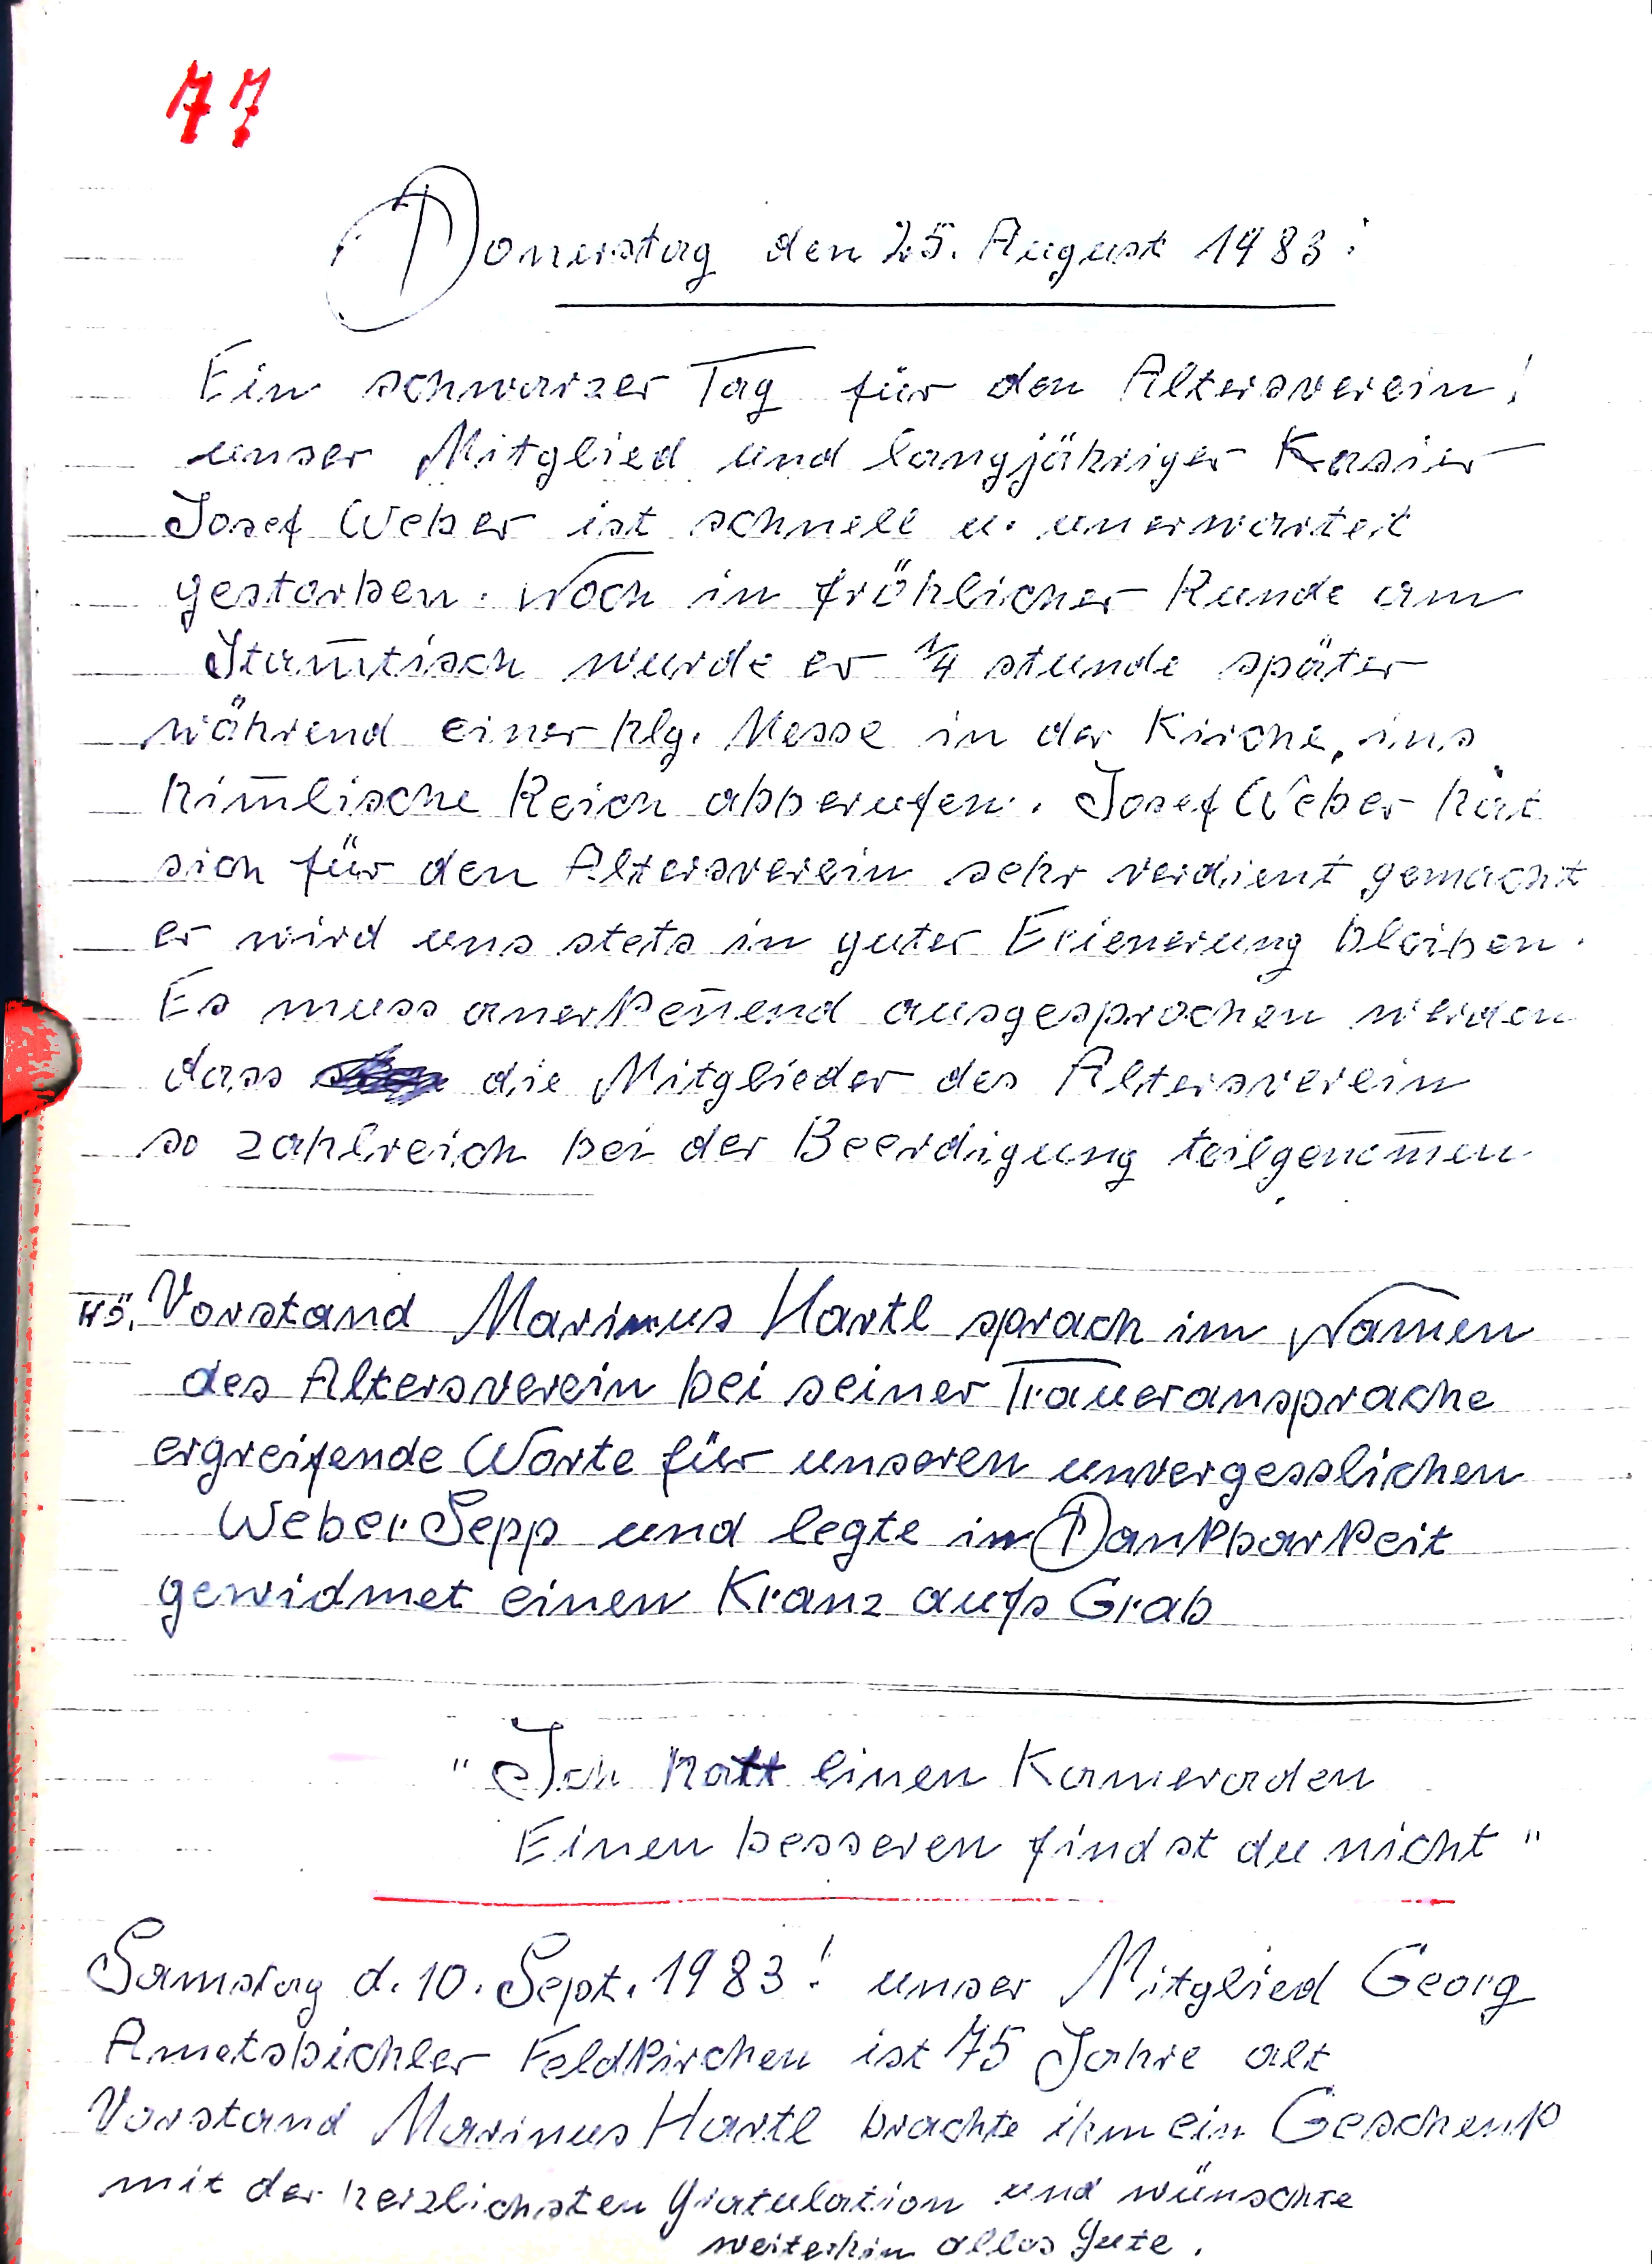 77
Donerstag den 25. August 1983:
Ein schwarzer Tag für den Altersverein!
unser Mitglied und langjähriger Kasier
Josef Weber ist schnell u. unerwartet
gestorben. Noch in fröhlicher Runde am
Stam̄tisch wurde er 1/4 stunde später
während einer hlg. Messe in der Kirche, ins
him̄lische Reich abberufen. Josef Weber hat
sich für den Altersverein sehr verdient gemacht
er wird uns stets in guter Erienerung bleiben.
Es muss anerken̄end ausgesprochen werden
dass die Mitglieder des Altersverein
so zahlreich bei der Beerdigung teilgenom̄en
Vorstand Marinus Hartl sprach im Namen
des Altersverein bei seiner Traueransprache
ergreifende Worte für unseren unvergesslichen
Weber Sepp und legte in Dankbarkeit
gewidmet einen Kranz aufs Grab
" Ich hatt einen Kameraden
Einen besseren findst du nicht "
Samstag d. 10. Sept. 1983! unser Mitglied Georg
Ametsbichler Feldkirchen ist 75 Jahre alt
Vorstand Marinus Hartl brachte ihm ein Geschenk
mit der herzlichsten Gratulation und wünschte
weiterhin alles Gute.